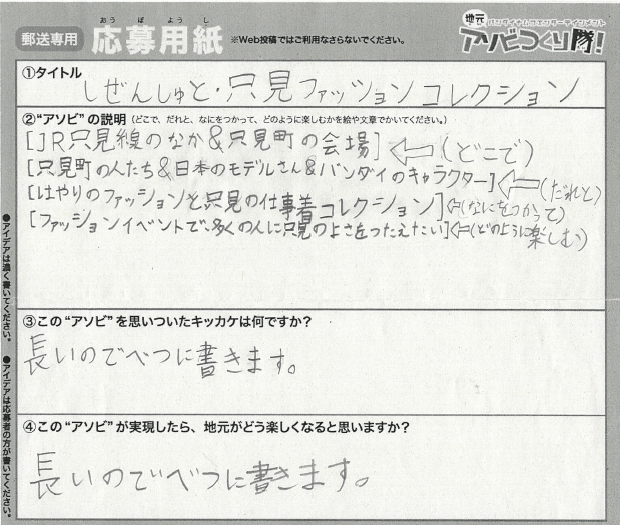 郵送専用 応募用紙 おうぼようし ※Web投稿ではご利用なさらないでください。
地元 バンダイナムコエンターテインメント
アソビつくり隊!
①タイトル
しぜんしゅと・只見ファッションコレクション
②"アソビ"の説明(どこで、だれと、なにをつかって、どのように楽しむかを絵や文章でかいてください。)
[JR只見線のなか&只見町の会場]⇦(どこで)
[只見町の人たち&日本のモデルさん&バンダイのキャラクター]⇦(だれと)
[はやりのファッションと只見の仕事着コレクション]⇦(なにをつかって)
[ファッションイベントで、多くの人に只見のよさをつたえたい]⇦(どのように楽しむ)
③この"アソビ"を思いついたキッカケは何ですか?
長いのでべつに書きます。
④この"アソビ"が実現したら、地元がどう楽しくなると思いますか?
長いのでべつに書きます。
●アイデアは濃く書いてください。
●アイデアは応募者の方が書いてください。